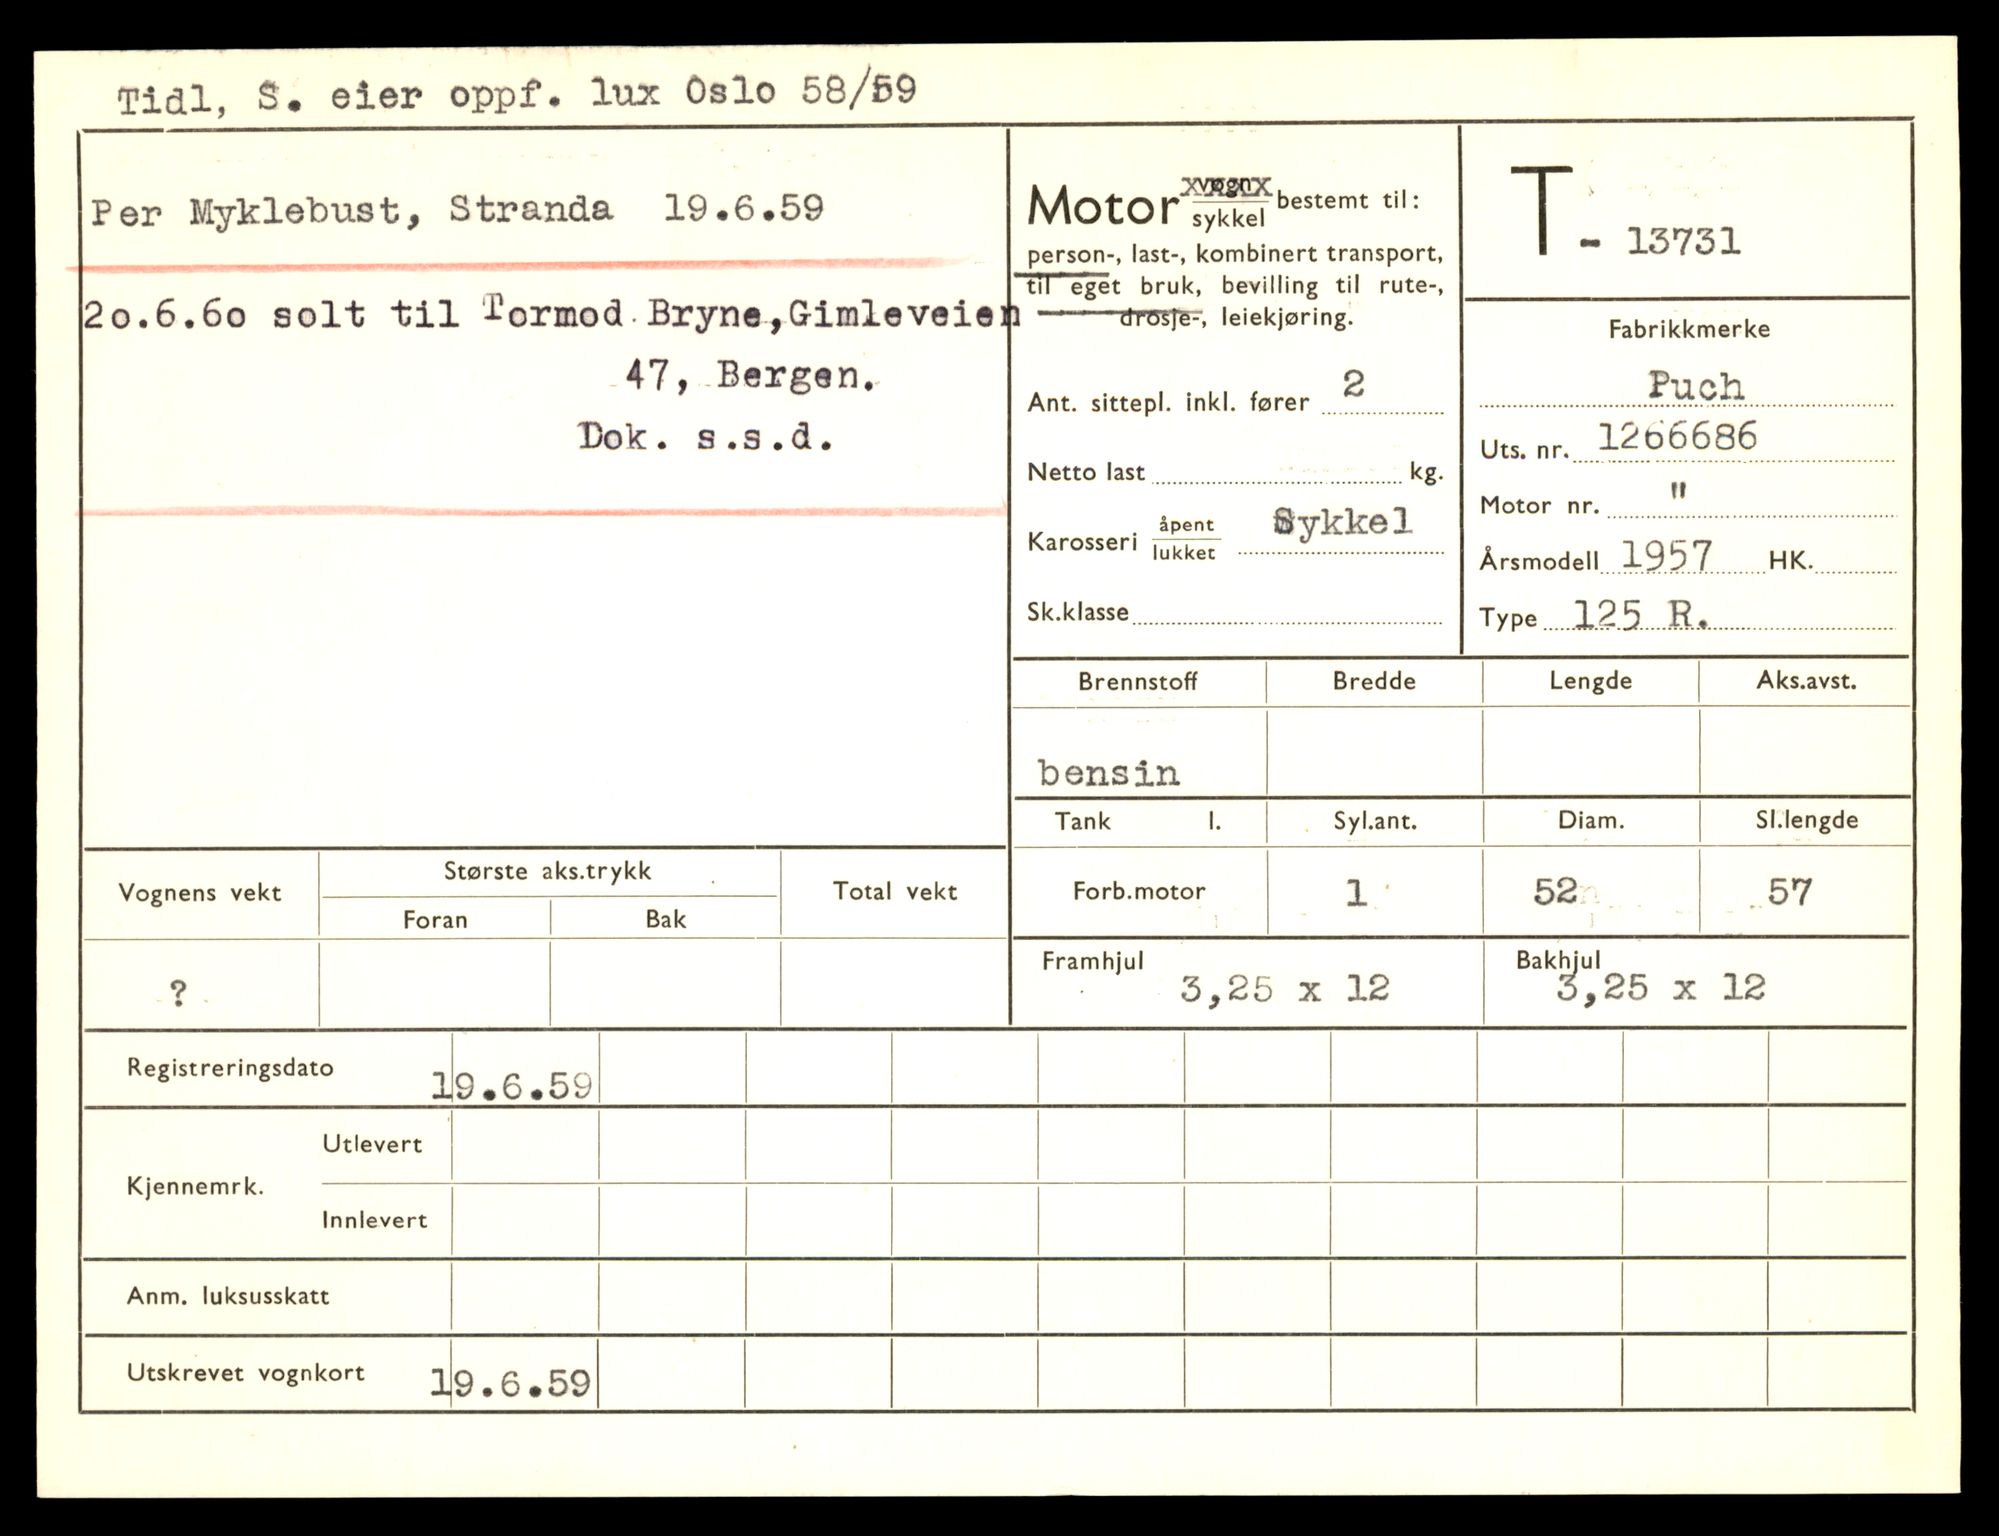 Tidl, S. eier oppf. lux Oslo 58/59
Per Myklebust, Stranda 19.6.59
2o.6.6o solt til Tormod Bryne,Gimleveien
47, Bergen.
Dok. s.s.d.
Motor vogn bestemt til:
sykkel
person-, last-, kombinert transport,
til eget bruk, bevilling til rute-,
drosje-, leiekjøring.
Ant. sittepl. inkl. fører 2
Netto last kg.
Karosseri åpent Sykkel
lukket
Sk.klasse
T - 13731
Fabrikkmerke
Puch
Uts. nr. 1266686
Motor nr. "
Årsmodell 1957 HK.
Type 125 R.
Brennstoff Bredde Lengde Aks.avst.
bensin
Tank l. Syl.ant. Diam. Sl.lengde
Forb.motor 1 52 57
Framhjul 3,25 x 12 Bakhjul 3,25 x 12
Vognens vekt Største aks.trykk Total vekt
Foran Bak
?
Registreringsdato 19.6.59
Kjennemrk.
Utlevert
Innlevert
Anm. luksusskatt
Utskrevet vognkort 19.6.59